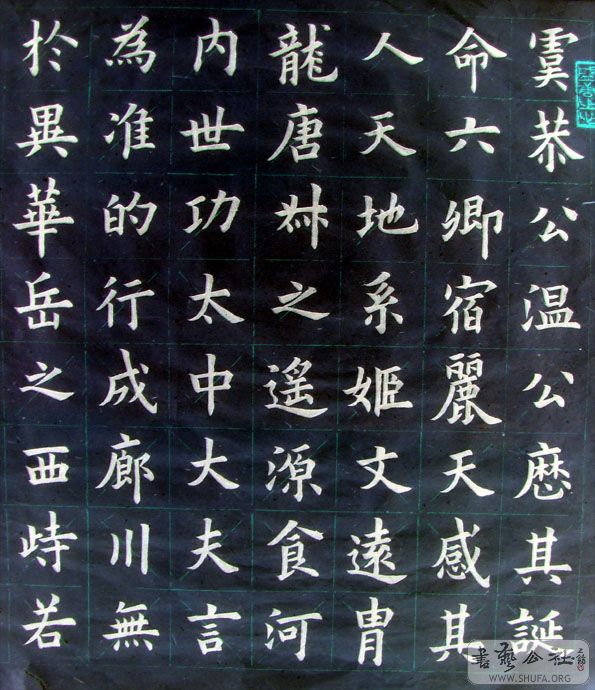 虞恭公温公歴其誕
命六卿宿麗天感其
人天地系姬文遠胄
龍唐叔之遥源食河
内世功太中大夫言
為准的行成廊川無
於異華岳之西峙若
書艺公社
WWW.SHUFA.ORG